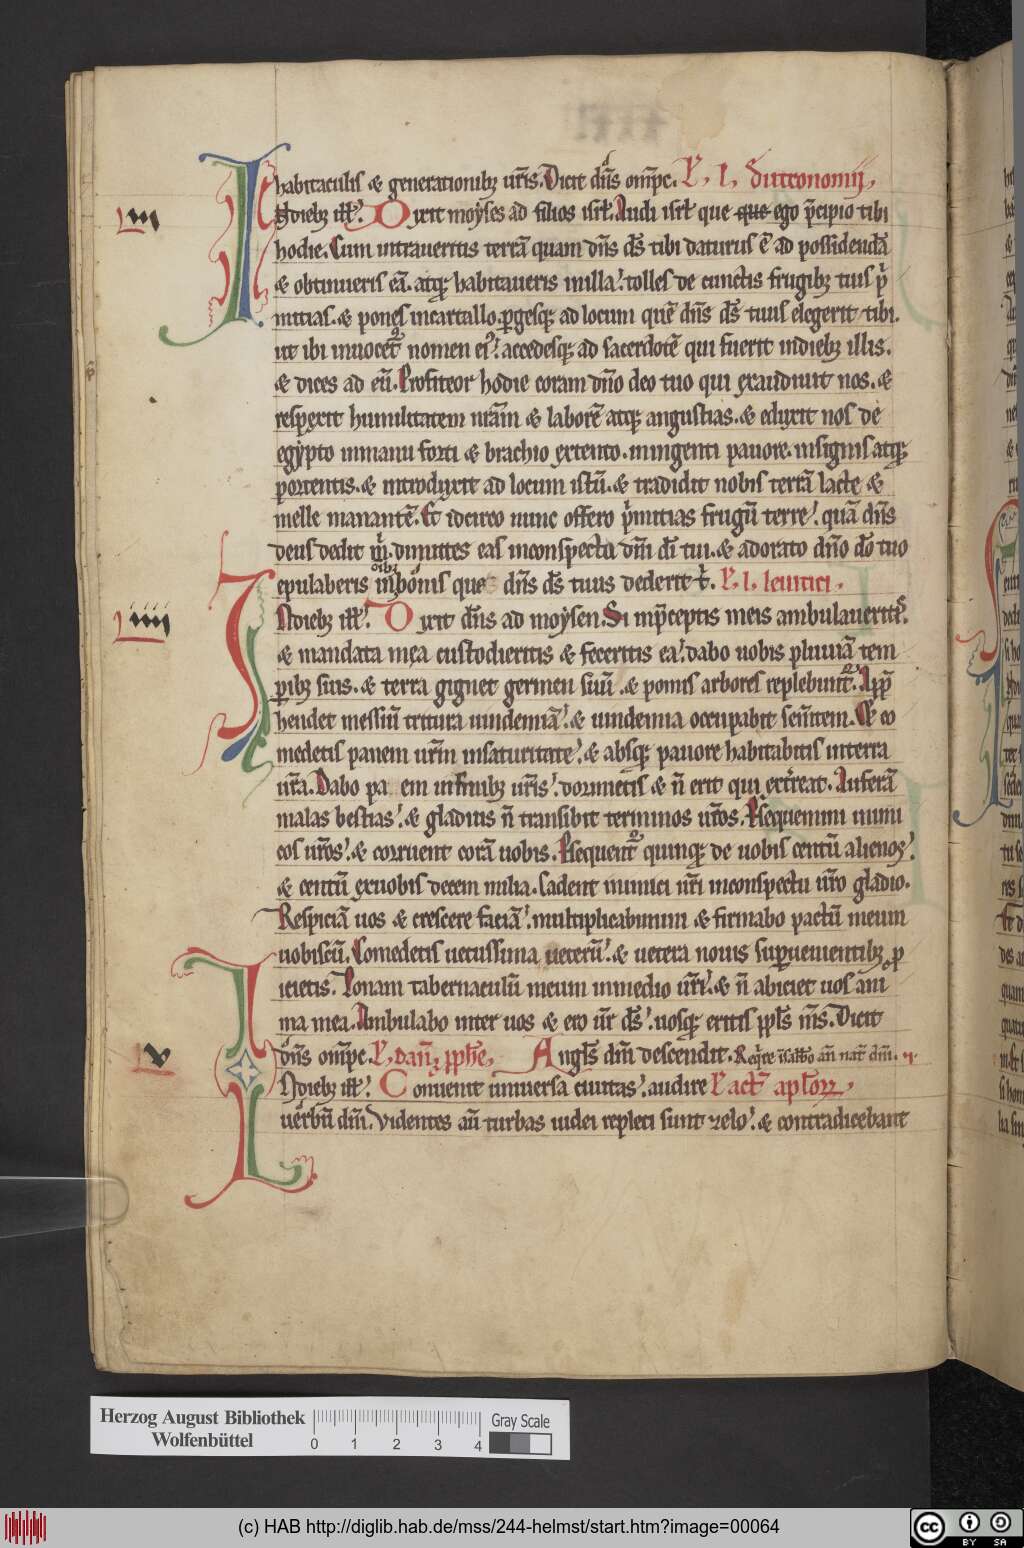 habitaculis & generationibꝫ ur̄is. Dicit dn̄s om̄pc. L. l. Deuteronomii.
iii
INdiebꝫ ill̄. Dixit moẏses ad filios isrl̄. Audi isrl̄ que que ego p̄cipio tibi
hodie. Cum intraueritis terrā quam dn̄s ds̄ tibi daturus ē ad possidendā
& obtinueris eā. atqꝫ habitaueris inilla. tolles de cunctis frugibꝫ tuis p̄
mitias. & pones incartallo. ꝑgesqꝫ ad locum quē dn̄s ds̄ tuus elegerit tibi.
ut ibi inuocet᷑ nomen ei᷒. accedesqꝫ ad sacerdotē qui fuerit indiebꝫ illis.
& dices ad eū. Profiteor hodie coram dn̄o deo tuo qui exaudiuit nos. &
respexit humilitatem nr̄am & laborē atqꝫ angustias. & eduxit nos de
egẏpto inmanu forti & brachio extento. iningenti pauore. insignis atqꝫ
portentis. & introduxit ad locum istū. & tradidit nobis terrā lacte &
melle manantē. Et idcirco nunc offero p̄mitias frugū terre. quā dn̄s
deus dedit m̄. Dimittes eas inconspectu dn̄i dī tui. & adorato dn̄o dō tuo
epulaberis in oībꝫ bonis que dn̄s ds̄ tuus dederit t̄. L. l. leuitici.
iiii
INdiebꝫ ill̄. Dixit dn̄s ad moẏsen. Si inp̄ceptis meis ambulaueritis.
& mandata mea custodieritis & feceritis ea. dabo uobis pluuiā tem
ꝑibꝫ suis. & terra gignet germen suū. & pomis arbores replebunt᷑. App̄
hendet messiū tritura uindemiā. & uindemia occupabit sem̄tem. & co
medetis panem ur̄m insaturitate. & absqꝫ pauore habitabitis interra
ur̄a. Dabo pa em infinibꝫ ur̄is. dormietis & n̄ erit qui exterreat. Auferā
malas bestias. & gladius n̄ transibit terminos ur̄os. Ꝑsequemini inimi
cos ur̄os. & corruent corā uobis. Ꝑsequent᷑ quinqꝫ de uobis centū alienoꝝ.
& centū exuobis decem milia. Cadent inimici ur̄i inconspectu ur̄o gladio.
Respiciā uos & crescere faciā. multiplicabimini & firmabo pactū meum
uobiscū. Comedetis uetustissima ueterū. & uetera nouis suꝑuenientibꝫ ꝓ
icietis. Ponam tabernaculū meum inmedio ur̄i. & n̄ abiciet uos ani
ma mea. Ambulabo inter uos & ero ur̄ ds̄. uosqꝫ eritis ppl̄s m̄s. Dicit
dn̄s om̄pc. L. Dan̄. ꝓph̄e. Angl̄s dn̄i descendit.
v
INdiebꝫ ill̄. Conuenit uniuersa ciuitas. audire L act᷑ apl̄oꝝ.
uerbū dn̄i. Videntes aū turbas iudei repleti sunt zelo. & contradicebant
Herzog August Bibliothek
Wolfenbüttel
0 1 2 3 4
Gray Scale
(c) HAB http://diglib.hab.de/mss/244-helmst/start.htm?image=00064
cc BY SA